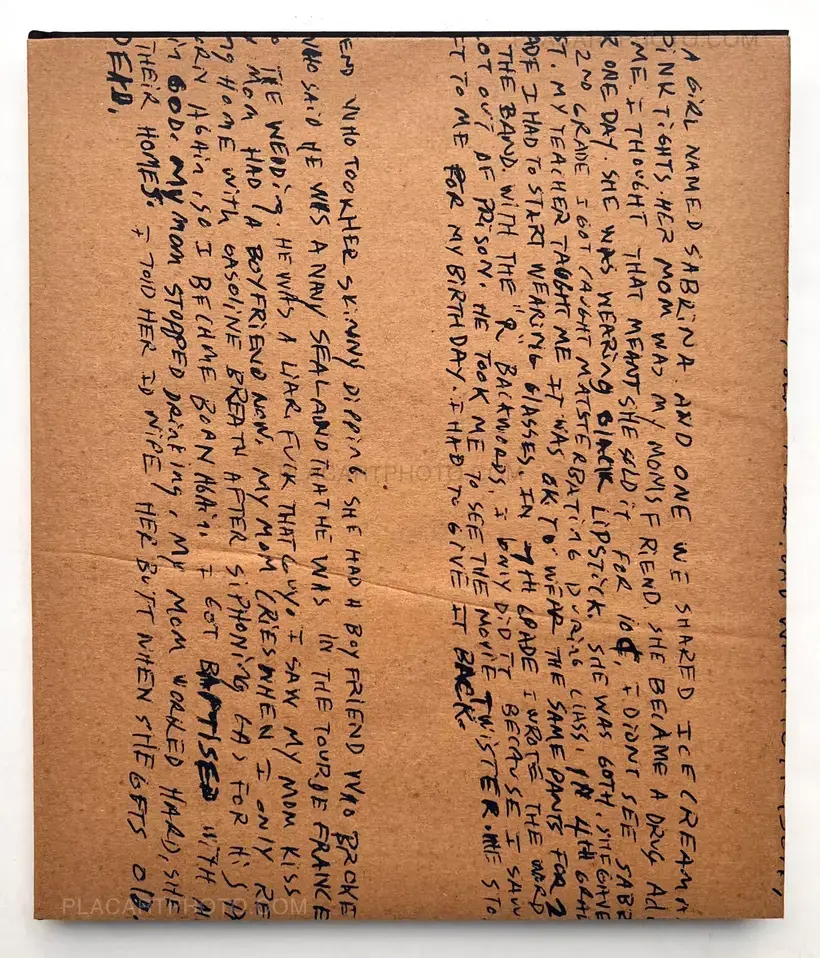 A GIRL NAMED SABRINA. AND ONE WE SHARED ICE CREAM A
PINK TIGHTS. HER MOM WAS MY MOMS FRIEND. SHE BECAME A DRUG AD
ME. I THOUGHT THAT MEANT SHE SOLD IT FOR 10¢. I DIDNT SEE SABR
R ONE DAY. SHE WAS WEARING BLACK LIPSTICK. SHE WAS GOTH. SHE GAVE
2ND GRADE I GOT CAUGHT MATSTERBATING DURING CLASS. IN 4TH GRAD
ST. MY TEACHER TAUGHT ME IT WAS OK TO WEAR THE SAME PANTS FOR 2
ADE I HAD TO START WEARING GLASSES. IN 7TH GRADE I WROTE THE WORD
THE BAND, WITH THE "R" BACKWORDS, I ONLY DID IT BECAUSE I SAW
OT OUT OF PRISON. HE TOOK ME TO SEE THE MOVIE TWISTER. HE STO
FT TO ME FOR MY BIRTHDAY. I HAD TO GIVE IT BACK.
END WHO TOOK HER SKINNY DIPPING SHE HAD A BOYFRIEND WHO BROKE
WHO SAID HE WAS A NAVY SEAL AND THAT HE WAS IN THE TOUR DE FRANCE
THE WEDDING. HE WAS A LIAR FUCK THAT GUY. I SAW MY MOM KISS
MOM HAD A BOYFRIEND NOW. MY MOM CRIES WHEN I ONLY RE
NG HOME WITH GASOLINE BREATH AFTER SIPHONING GAS FOR HIS
RN AGAIN, SO I BECAME BORN AGAIN. I GOT BAPTISED WITH
IN GOD. MY MOM STOPPED DRINKING, MY MOM WORKED HARD, SHE
THEIR HOMES. I TOLD HER ID WIPE HER BUTT WHEN SHE GETS OLD
DEAD.
PLACARTPHOTO.COM
PLACARTPHOTO.COM
PLACARTPHOTO.COM